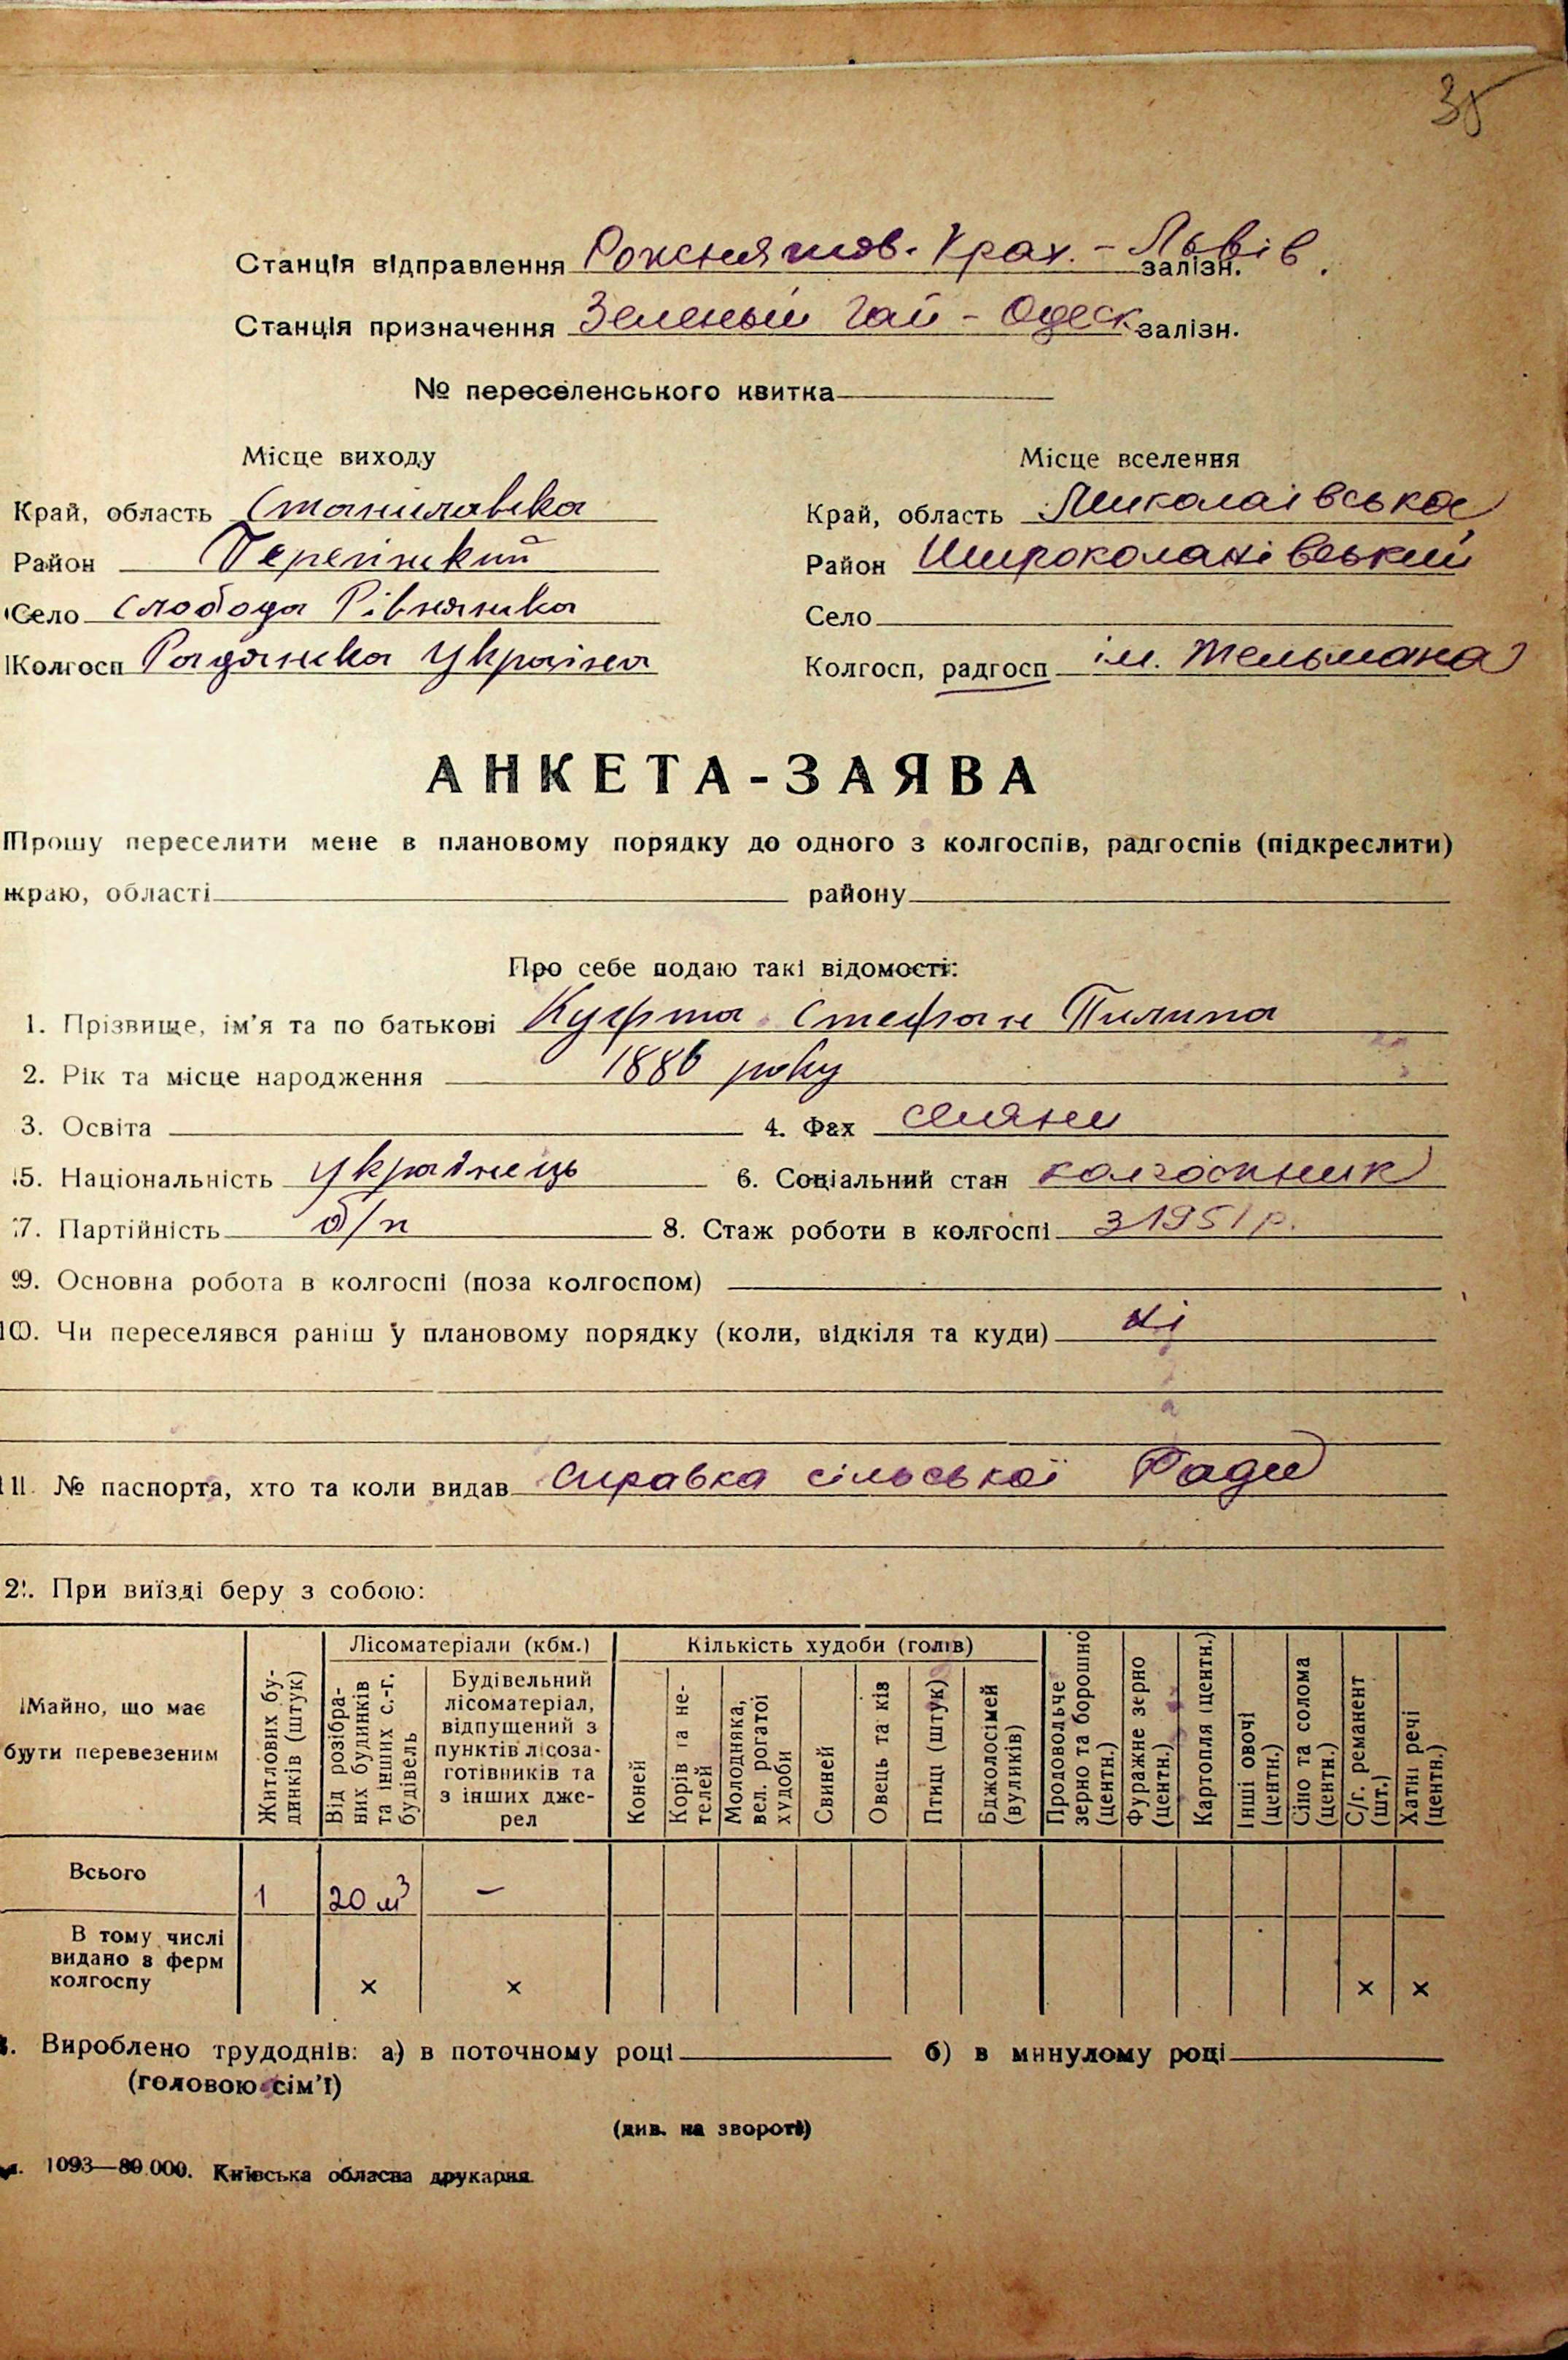 35
Станція відправлення Рожнятов-Крах. - Львів. залізн.
Станція призначення Зеленый Гай - Одеск залізн.
№ переселенського квитка
Місце виходу Місце вселення
Край, область Станиславська Край, область Миколаївська
Район Перегінський Район Широколанівський
Село Слобода Рівнянська Село
Колгосп Радянська Україна Колгосп, радгосп ім. Тельмана
АНКЕТА-ЗАЯВА
Прошу переселити мене в плановому порядку до одного з колгоспів, радгоспів (підкреслити)
краю, області району
Про себе подаю такі відомості:
1. Прізвище, ім'я та по батькові Стефан Пилипа
2. Рік та місце народження 1886 року
3. Освіта 4. Фах
5. Національність українець 6. Соціальний стан колгоспник
7. Партійність б/п 8. Стаж роботи в колгоспі з 1951 р.
9. Основна робота в колгоспі (поза колгоспом)
10. Чи переселявся раніш у плановому порядку (коли, відкіля та куди) ні
11. № паспорта, хто та коли видав справка сільської Ради
2. При виїзді беру з собою:
Майно, що має бути перевезеним
Житлових будинків (штук)
Лісоматеріали (кбм.)
Від розібраних будинків та інших с.-г. будівель
Будівельний лісоматеріал, відпущений з пунктів лісозаготівників та з інших джерел
Кількість худоби (голів)
Коней
Корів та нетелей
Молодняка, вел. рогатої худоби
Свиней
Овець та ків
Птиці (штук)
Бджолосімей (вуликів)
Продовольче зерно та борошно (центн.)
Фуражне зерно (центн.)
Картопля (центн.)
Інші овочі (центн.)
Сіно та солома (центн.)
С/г. реманент (шт.)
Хатні речі (центн.)
Всього 1 20 м³ –
В тому числі видано з ферм колгоспу × × × ×
Вироблено трудоднів: а) в поточному році б) в минулому році
(головою сім'ї)
(див. на звороті)
1093—80.000. Київська обласна друкарня